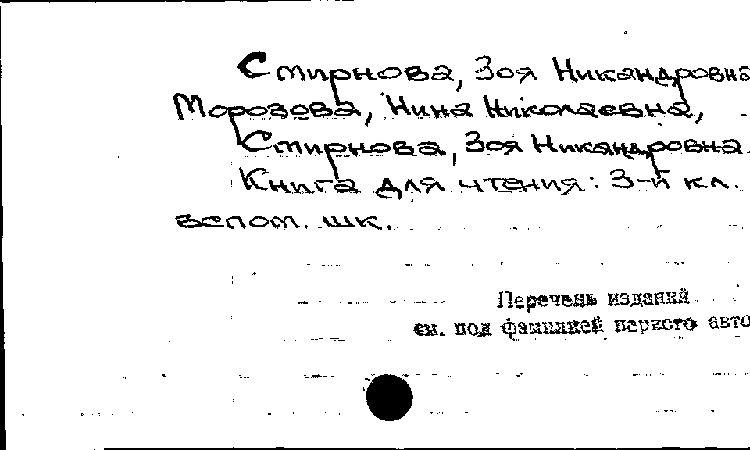 Смирнова, Зоя Никандровна
Морозова, Нина Николаевна,
Смирнова, Зоя Никандровна
Книга для чтения: 3-й кл.
вспом. шк.
Перечень изданий
см. под фамилией первого авто